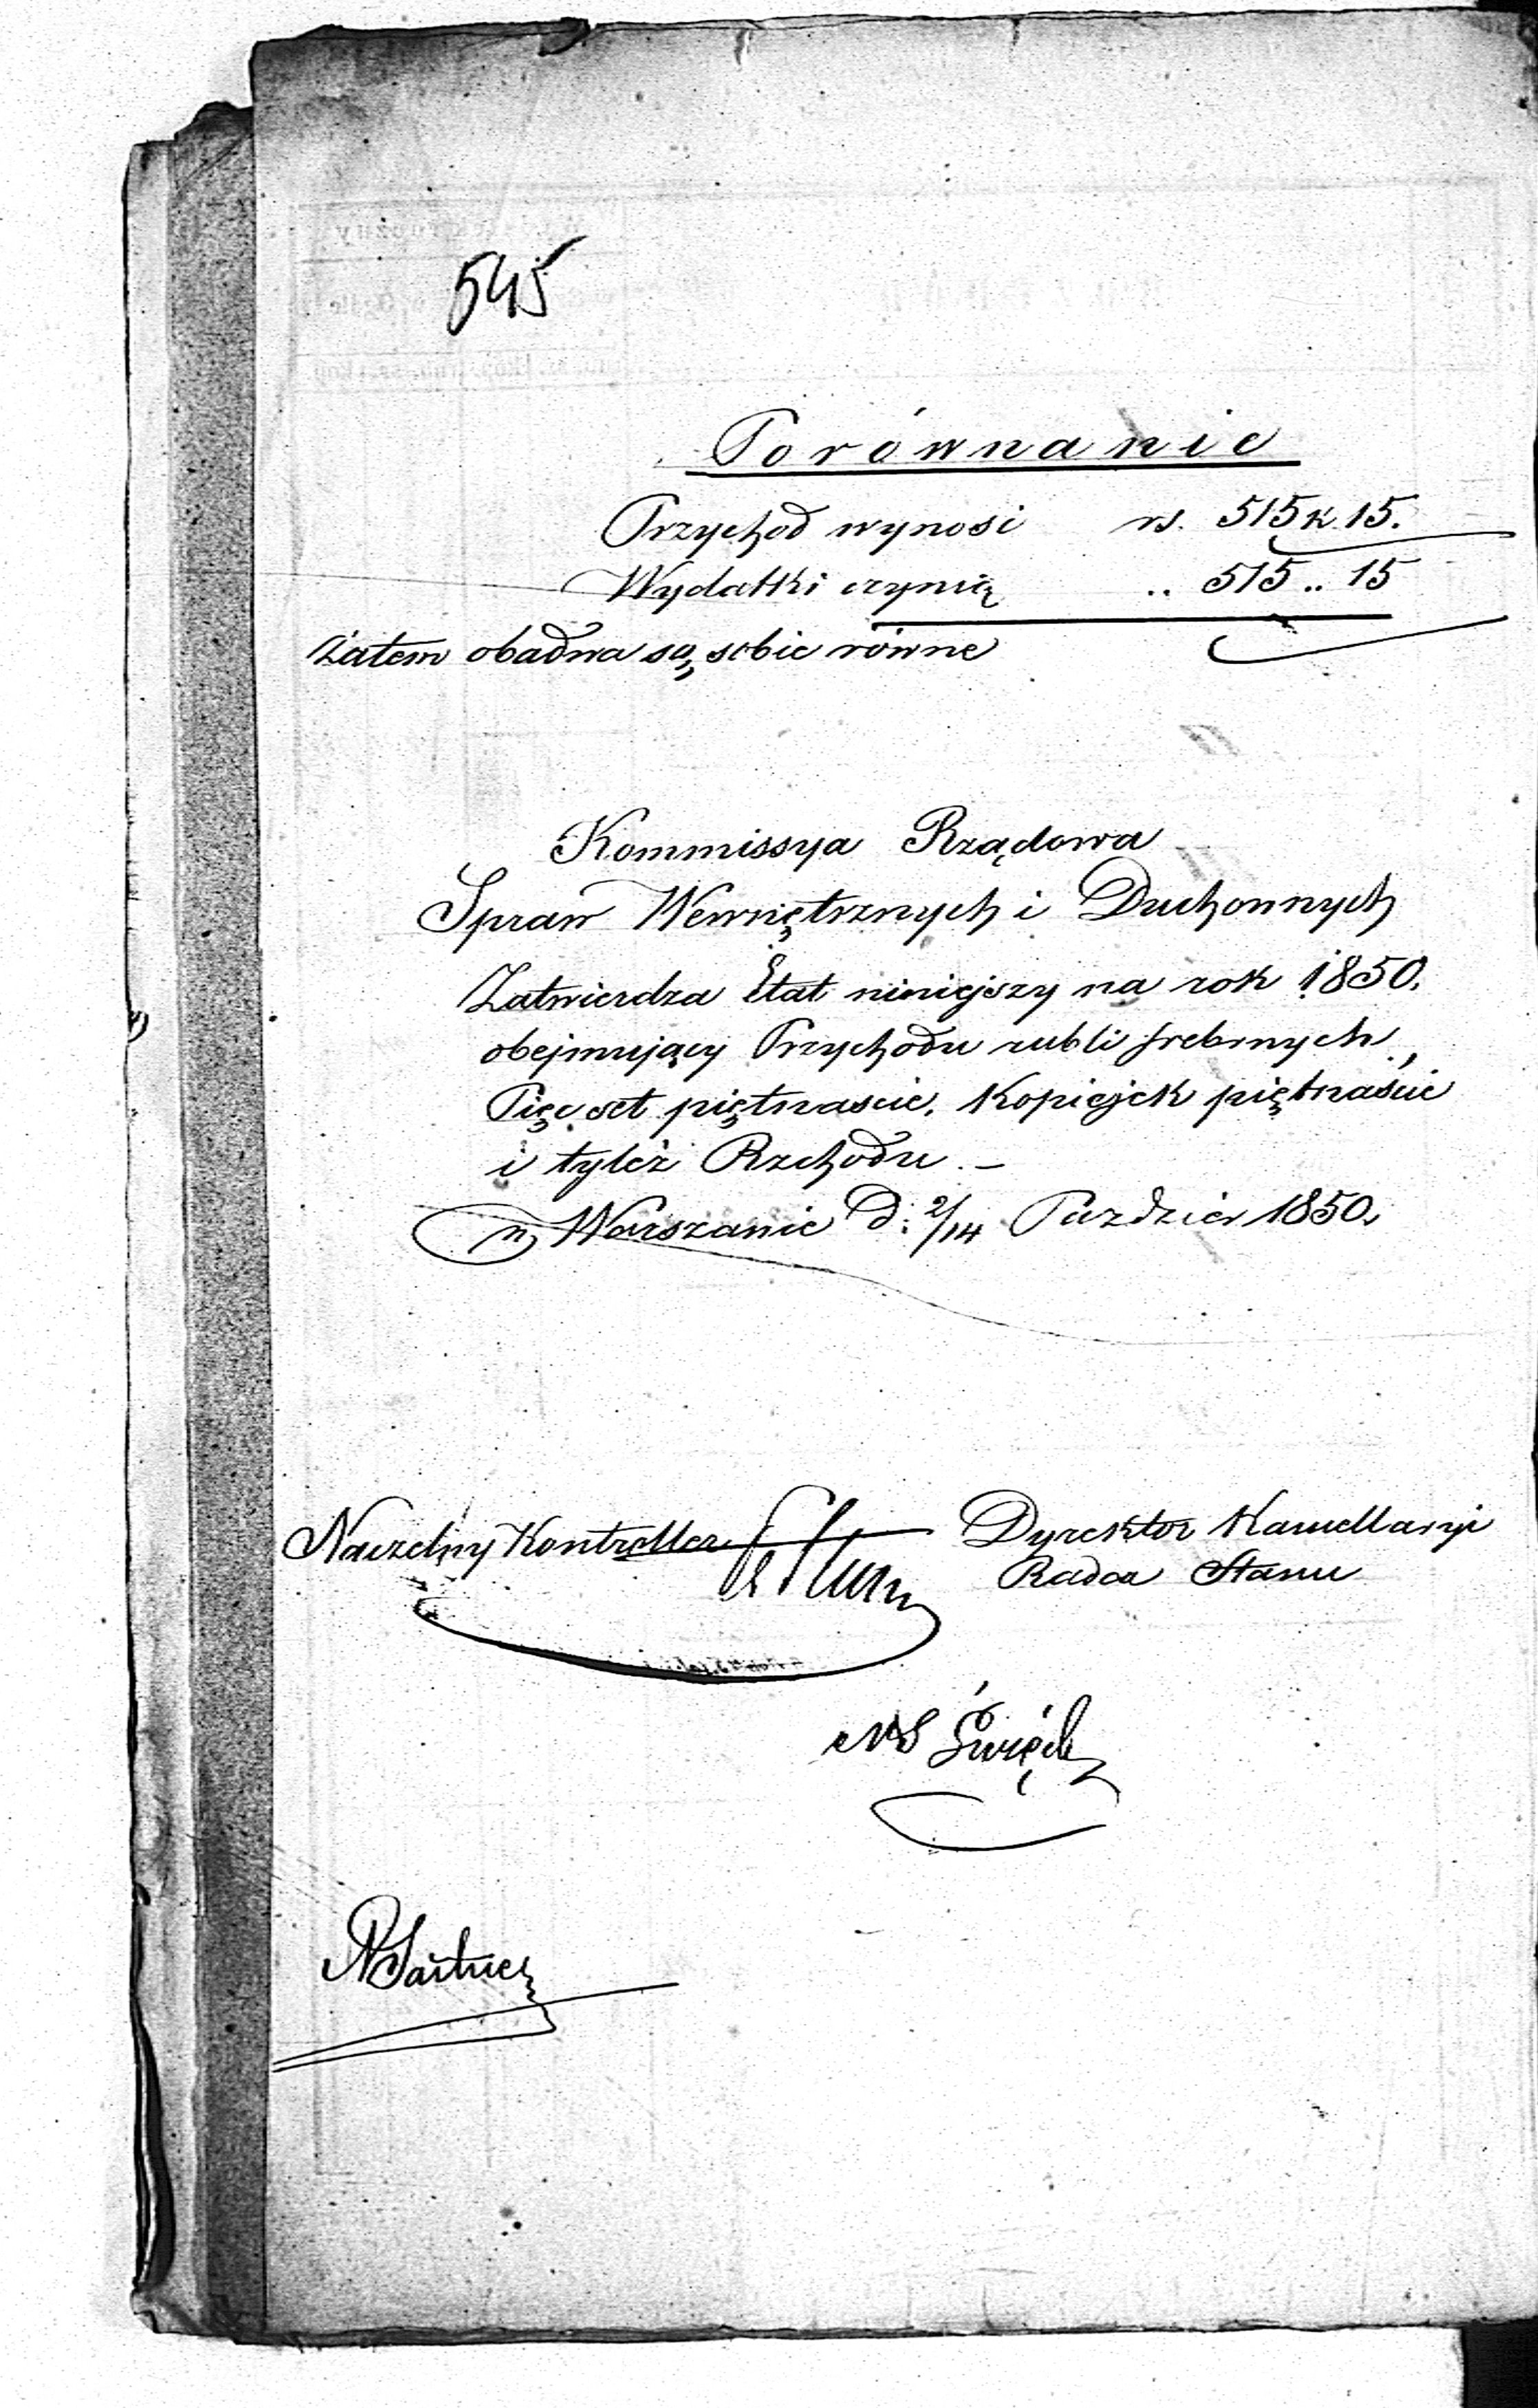 545
Porównanie
Przychod wynosi rs. 515 k. 15.
Wydatki czynią .. 515 .. 15
Zatem obadwa są sobie równe
Kommissya Rządowa
Spraw Wewnętrznych i Duchownych
Zatwierdza Etat niniejszy na rok 1850.
obejmujący Przychodu rubli srebrnych
Pięc set piętnascie, Kopiejek piętnaście
i tyleż Rzchodu. –
w Warszawie d: 2/14 Paździer 1850.
Naczelny Kontroller
Dyrektor Kancellaryi
Radca Stanu